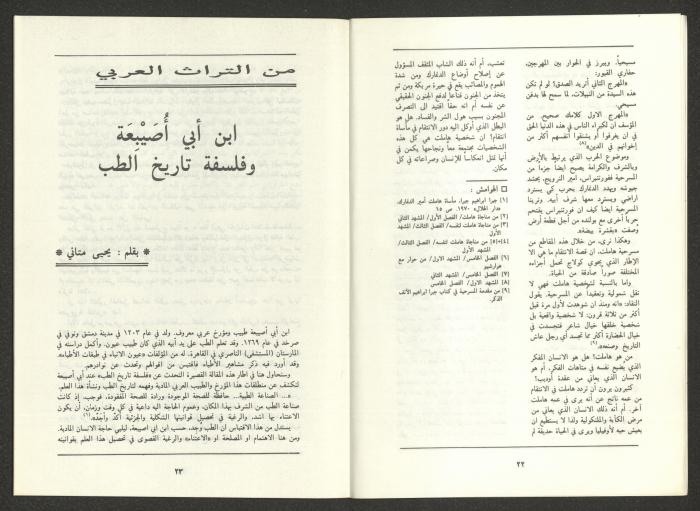 مسيحياً. ويبرز في الحوار بين المهرجين،
حفاري القبور:
«المهرج الثاني أتريد الصدق؟ لو لم تكن
هذه السيدة من النبيلات، لما سمح لها بدفن
مسيحي.
«المهرج الاول كلامك صحيح. من
المؤسف ان لكبراء الناس في هذه الدنيا الحق
في ان يغرقوا أو يشنقوا أنفسهم أكثر من
إخوانهم في الدين»(٨)
وموضوع الحرب الذي يرتبط بالأرض
وبالشرف والكرامة يصبح أيضاً جزءاً من
المسرحية ففورتنبراس، امير النرويج، يحشد
جيوشه ويهدد الدفارك بحرب كي يسترد
اراضي ويسترد معها شرف أبيه. وترينا
المسرحية ايضاً كيف ان فورتنبراس يقتحم
حرباً أخرى مع بولنده من أجل قطعة أرض
وصفت «بقشرة بيضة».
وهكذا نرى، من خلال هذه المقاطع من
مسرحية هاملت، ان قصة الانتقام ما هي الا
الإطار الذي يحوي كولاج تحمل أجزاءه
المختلفة صوراً صادقة من الحياة.
واما بالنسبة لشخصية هاملت فهي لا
تقل شمولية وتعقيداً عن المسرحية. يقول
النقاد: «انه ومنذ ان شوهدت لأول مرة قبل
أكثر من ثلاثة قرون، لا شخصية واقعية بل
شخصية خلقها خيال شاعر فتجسدت في
خيال الحضارة أكثر مما تجسد أي رجل عاش
التاريخ وصنعه».(٩)
من هو هاملت؟ هل هو الانسان المفكر
الذي يضيع نفسه في متاهات الفكر. أم هو
الانسان الذي يعاني من عقدة أوديب؟
كثيرون يرون ان تردد هاملت في الانتقام
من عمه ناتج عن أنه يرى في عمه هاملت
آخر. أم أنه ذلك الانسان الذي يعاني من
مرض الكآبة والمشكولية ولذا لا يستطيع ان
يعيش حبه لأوفيليا ويرى في الحياة حديقة لم
تعشب، أم أنه ذلك الشاب المثقف المسؤول
عن إصلاح أوضاع الدفارك ومن شدة
الهموم والمصائب يقع في حيرة مربكة ومن ثم
يتخذ من الجنون قناعاً لدفع الجنون الحقيقي
عن نفسه أم انه حقاً افتيد الى التصرف
المجنون بسبب هول الشر والفساد. هل هو
البطل الذي أوكل اليه دور الانتقام في مأساة
انتقام! ان شخصية هاملت هي كل هذه
الشخصيات مجتمعة معاً ونجاحها يكمن في
أنها تمثل انعكاساً للإنسان وصراعاته في كل
مكان.
□ الهوامش:
[١] جبرا ابراهيم جبرا، مأساة هاملت أمير الدفارك،
«دار الهلال» ١٩٧٠. ص ١٥
[٢] من مناجاة هاملت/ الفصل الأول/ المشهد الثاني
[٣] من مناجاة هاملت لنفسه/ الفصل الثالث/ المشهد
الأول
[٤]+[٥] من مناجاة هاملت لنفسه/ الفصل الثالث/
المشهد الأول
[٦] الفصل الخامس/ المشهد الأول/ من حوار مع
هوارشيو
[٧] الفصل الخامس/ المشهد الثاني
[٨] المشهد الاول/ الفصل الخامس
[٩] من مقدمة المسرحية في كتاب جبرا ابراهيم الأنف
الذكر.
٢٢
من التراث العربي
ابن أبي أُصَيْبِعَة
وفلسفة تاريخ الطب
* بقلم: يحيى متاني *
ابن أبي أصيبعة طبيب ومؤرخ عربي معروف. ولد في عام ١٢٠٣ في مدينة دمشق وتوفي في
صرخد في عام ١٢٦٩. وقد تعلم الطب على يد أبيه الذي كان طبيب عيون. وأكمل دراسته في
المارستان (المستشفى) الناصري في القاهرة. له من المؤلفات «عيون الانباء في طبقات الأطباء».
وقد أورد فيه ذكر مشاهير الأطباء فاقتبس من أقوالهم وتحدث عن نوادرهم.
وسنحاول هنا في اطار هذه المقالة القصيرة التحدث عن «فلسفة تاريخ الطب» عند أبي أصيبعة
لنكشف عن منطلقات هذا المؤرخ والطبيب العربي المادية وفهمه لتاريخ الطب ونشأة هذا العلم.
«... الصناعة الطبية.. حافظة للصحة الموجودة ورادة للصحة المفقودة، فوجب إذ كانت
صناعة الطب من الشرف بهذا المكان، وعموم الحاجة اليه داعية في كل وقت وزمان، أن يكون
الاعتناء بها أشد، والرغبة في تحصيل قوانينها الشكلية والجزئية آكد وأجد».(١)
يستدل من هذا الاقتباس ان الطب وُجد، حسب ابن ابي اصيبعة، ليلبي حاجة الانسان المادية.
ومن هنا الاهتمام او المصلحة او «الاعتناء» والرغبة القصوى في تحصيل هذا العلم بقوانينه
٢٣